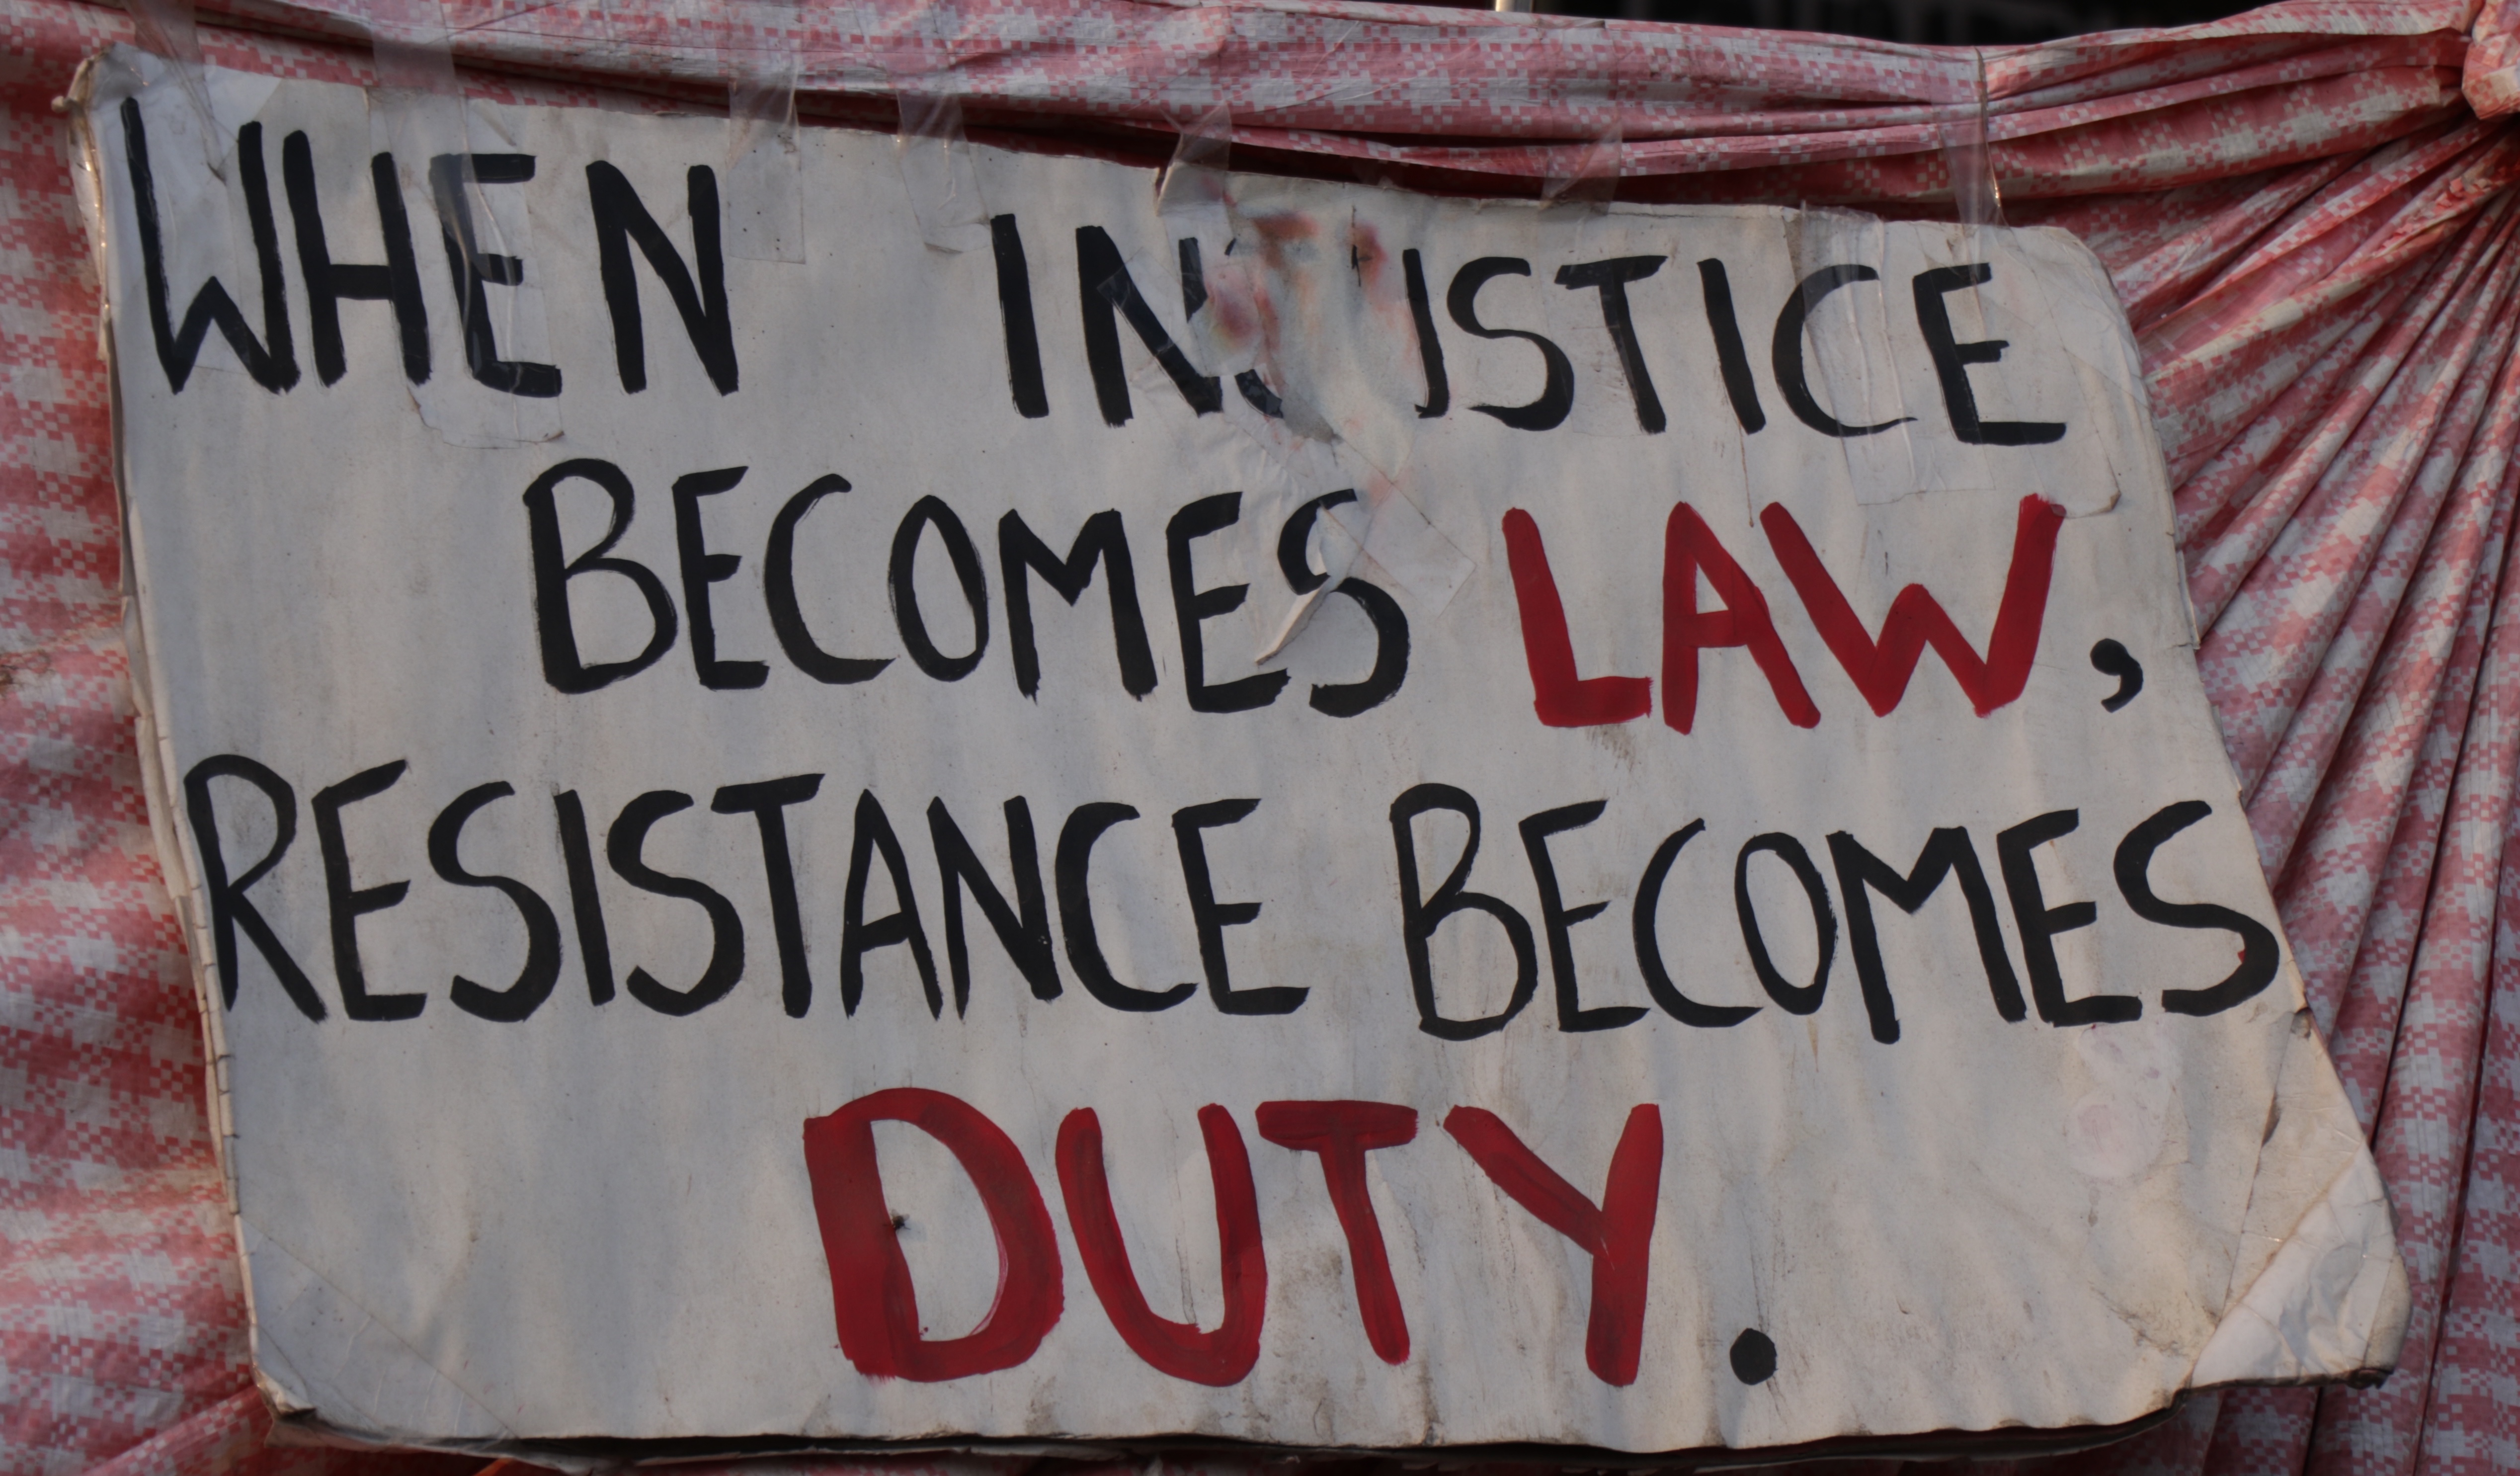 WHEN INJUSTICE
BECOMES LAW,
RESISTANCE BECOMES
DUTY.